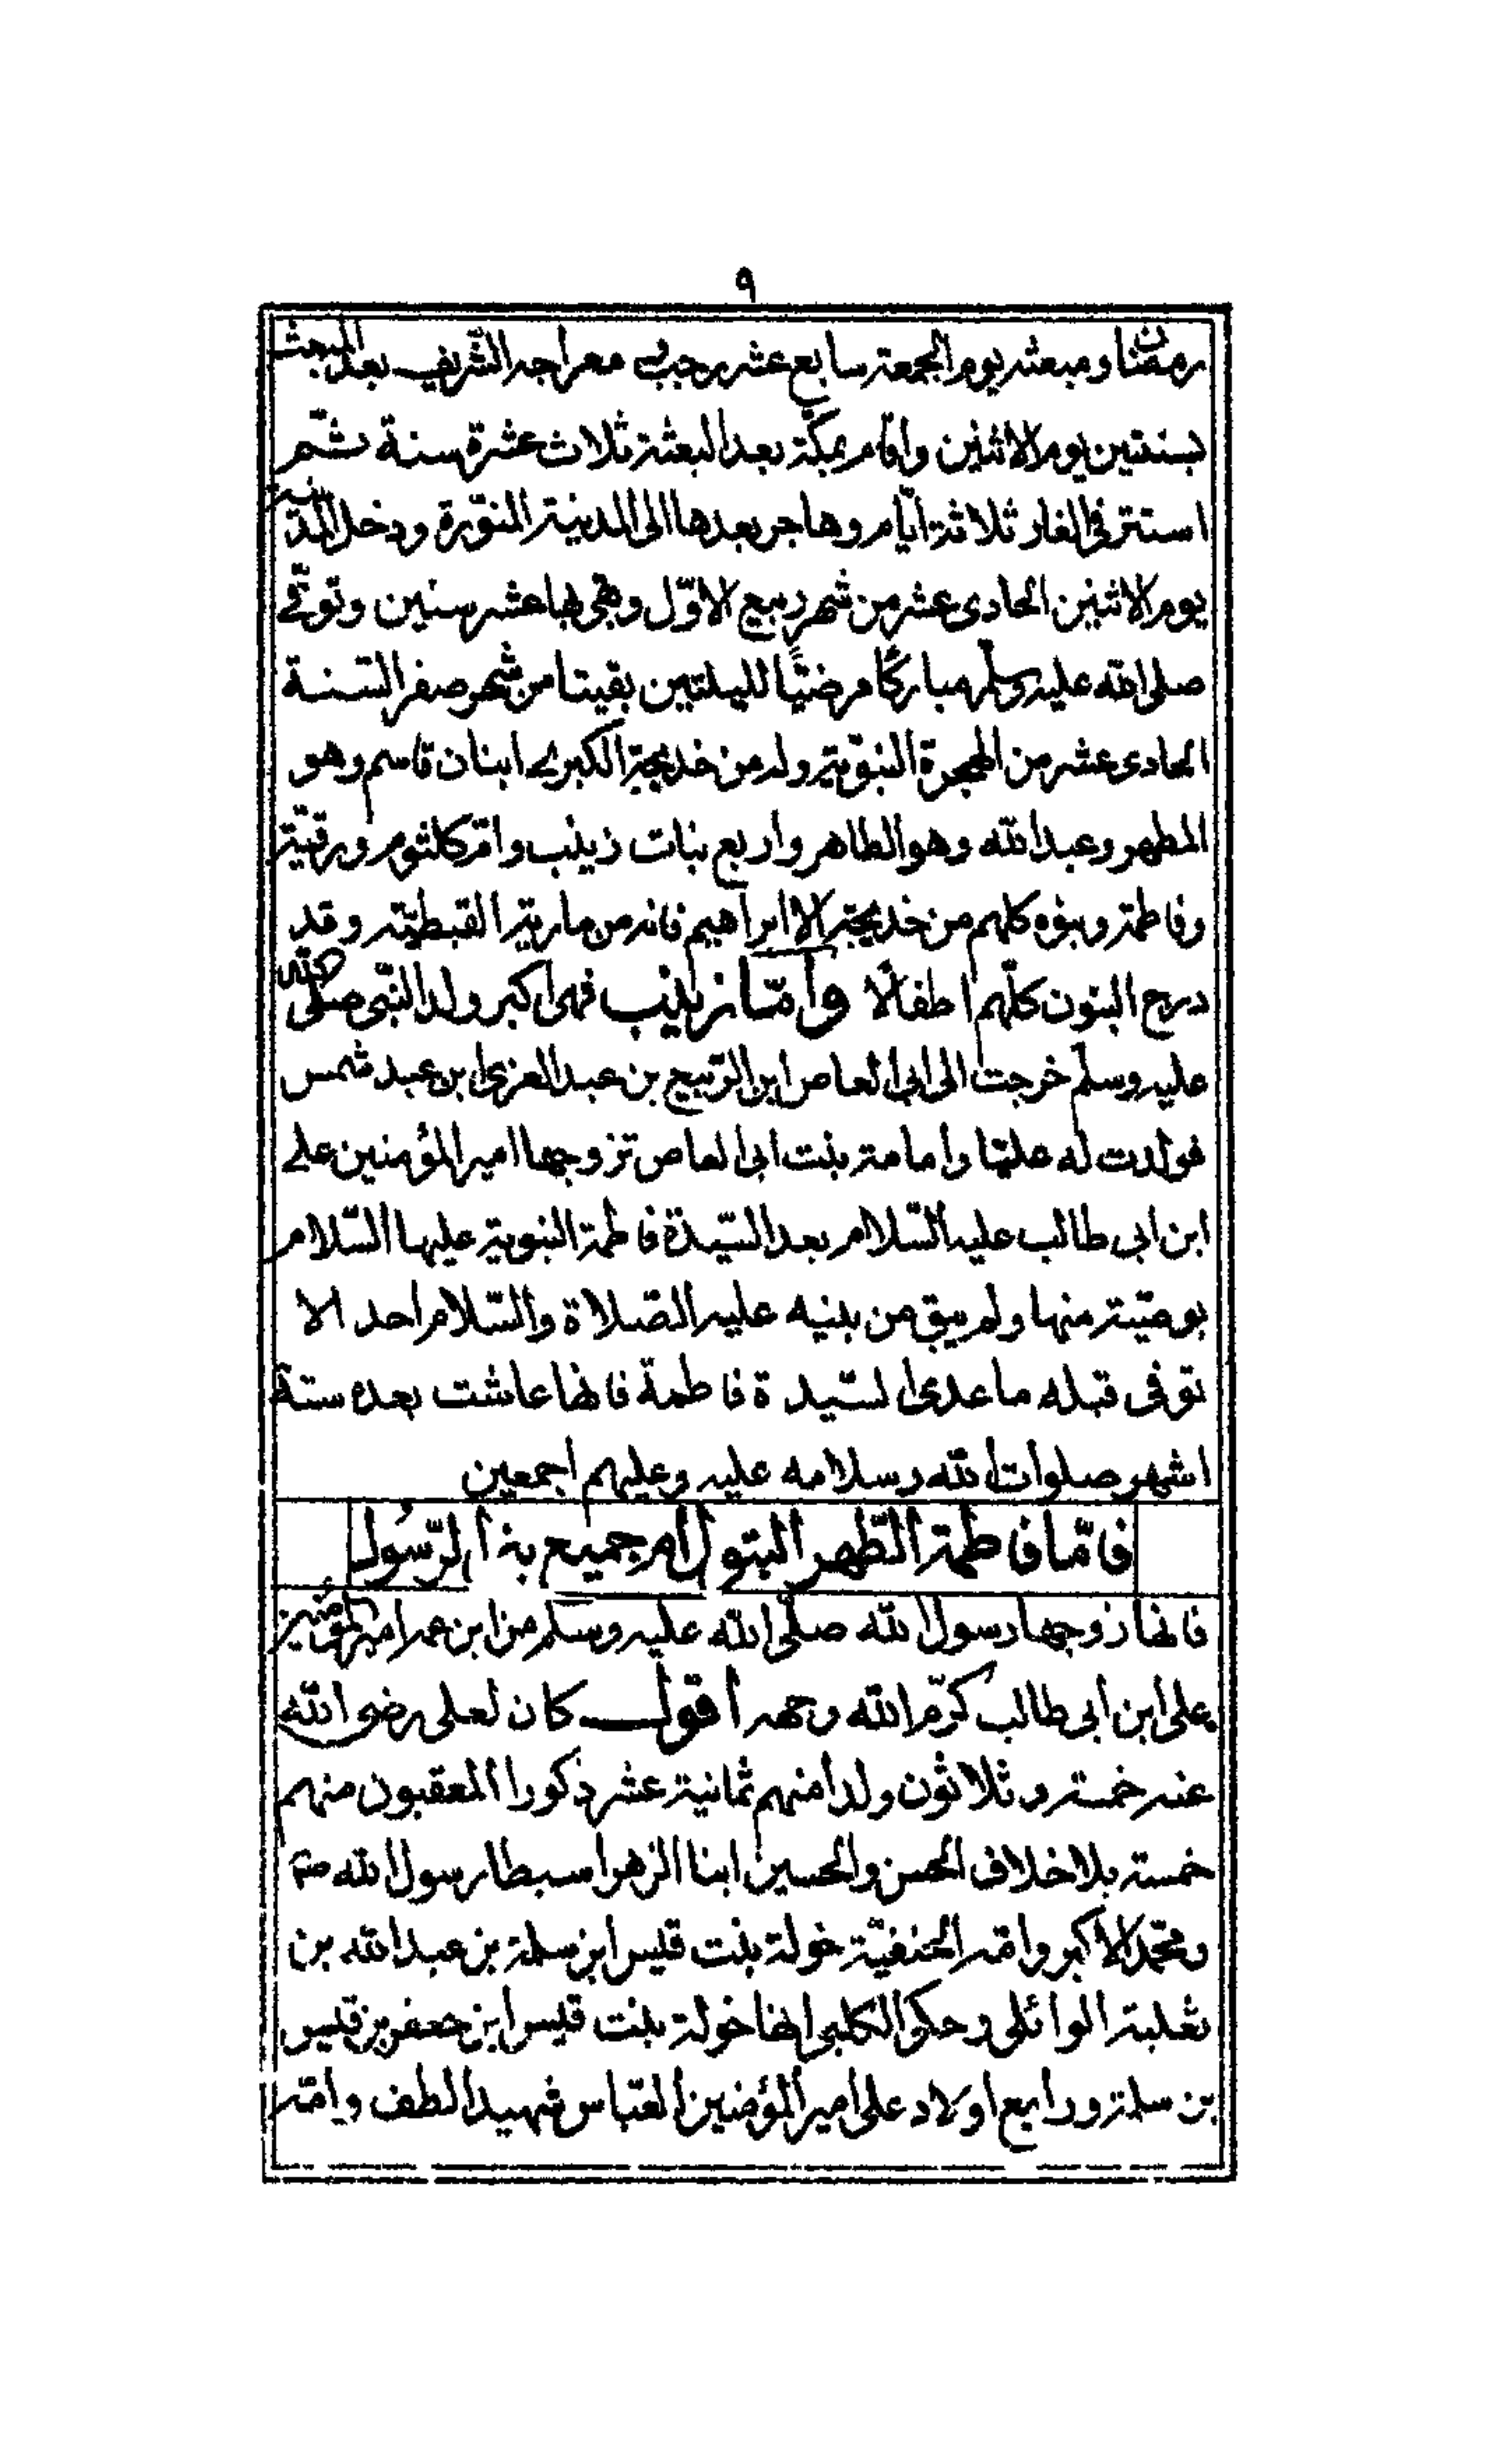 ٩
رمضان ومبعثه يوم الجمعة سابع عشر رجب في معراجه الشريف بعد المبعث
بسنتين يوم الاثنين واقام بمكّة بعد البعثة ثلاث عشرة سنة ثمّ
استتر في الغار ثلاثة ايّام وهاجر بعدها الى المدينة المنوّرة ودخل المدينة
يوم الاثنين الحادى عشر من شهر ربيع الاوّل وبقى بها عشر سنين وتوفّى
صلى الله عليه وسلّم مباركًا مرضيًّا لليلتين بقيتا من شهر صفر السّنة
الحادى عشر من الهجرة النبوّية وله من خديجة الكبرى ابنان قاسم وهو
المطهر وعبد الله وهو الطاهر واربع بنات زينب وامّ كلثوم ورقيّة
وفاطمة وبنوه كلهم من خديجة الا ابراهيم فانه من مارية القبطيّة وقد
درج البنون كلّهم اطفالًا وأمّا زينب فهى اكبر ولد النبّى صلّى الله
عليه وسلّم خرجت الى ابى العاص ابن الرّبيع بن عبد العزى ابن عبد شمس
فولدت له عليّا وامامة بنت ابى العاص تزوجها امير المؤمنين على
ابن ابى طالب عليه السّلام بعد السّيدة فاطمة النبوية عليها السّلام
بوصيّة منها ولم يبق من بنيه عليه الصّلاة والسّلام احد الا
توفى قبله ما عدى السّيدة فاطمة فانها عاشت بعده ستة
اشهر صلوات الله وسلامه عليه وعليهم اجمعين
فامّا فاطمة الطّهر البتول ام جميع بنى الرّسُول
فانها زوجها رسول الله صلّى الله عليه وسلّم من ابن عمه امير المؤمنين
على ابن ابى طالب كرّم الله وجهه اقول كان لعلى رضى الله
عنه خمسة وثلاثون ولدا منهم ثمانية عشر ذكورا المعقبون منهم
خمسة بلا خلاف الحسن والحسين ابنا الزهرا سبطا رسول الله صلم
ومحمّد الاكبر وامّه الحنفيّة خولة بنت قيس ابن سلمة بن عبد الله بن
ثعلبة الوائلى وحكى الكلبى انها خولة بنت قيس ابن جعفر بن قيس
بن سلمة ورابع اولاد على امير المؤمنين العبّاس شهيد الطف وامّه